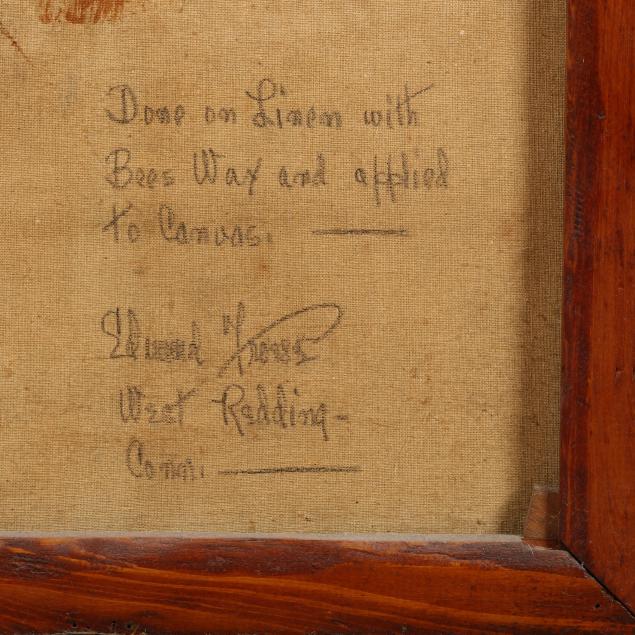 Done on Linen with
Bees Wax and applied
to Canvas.
Edmund
West Redding-
Conn.